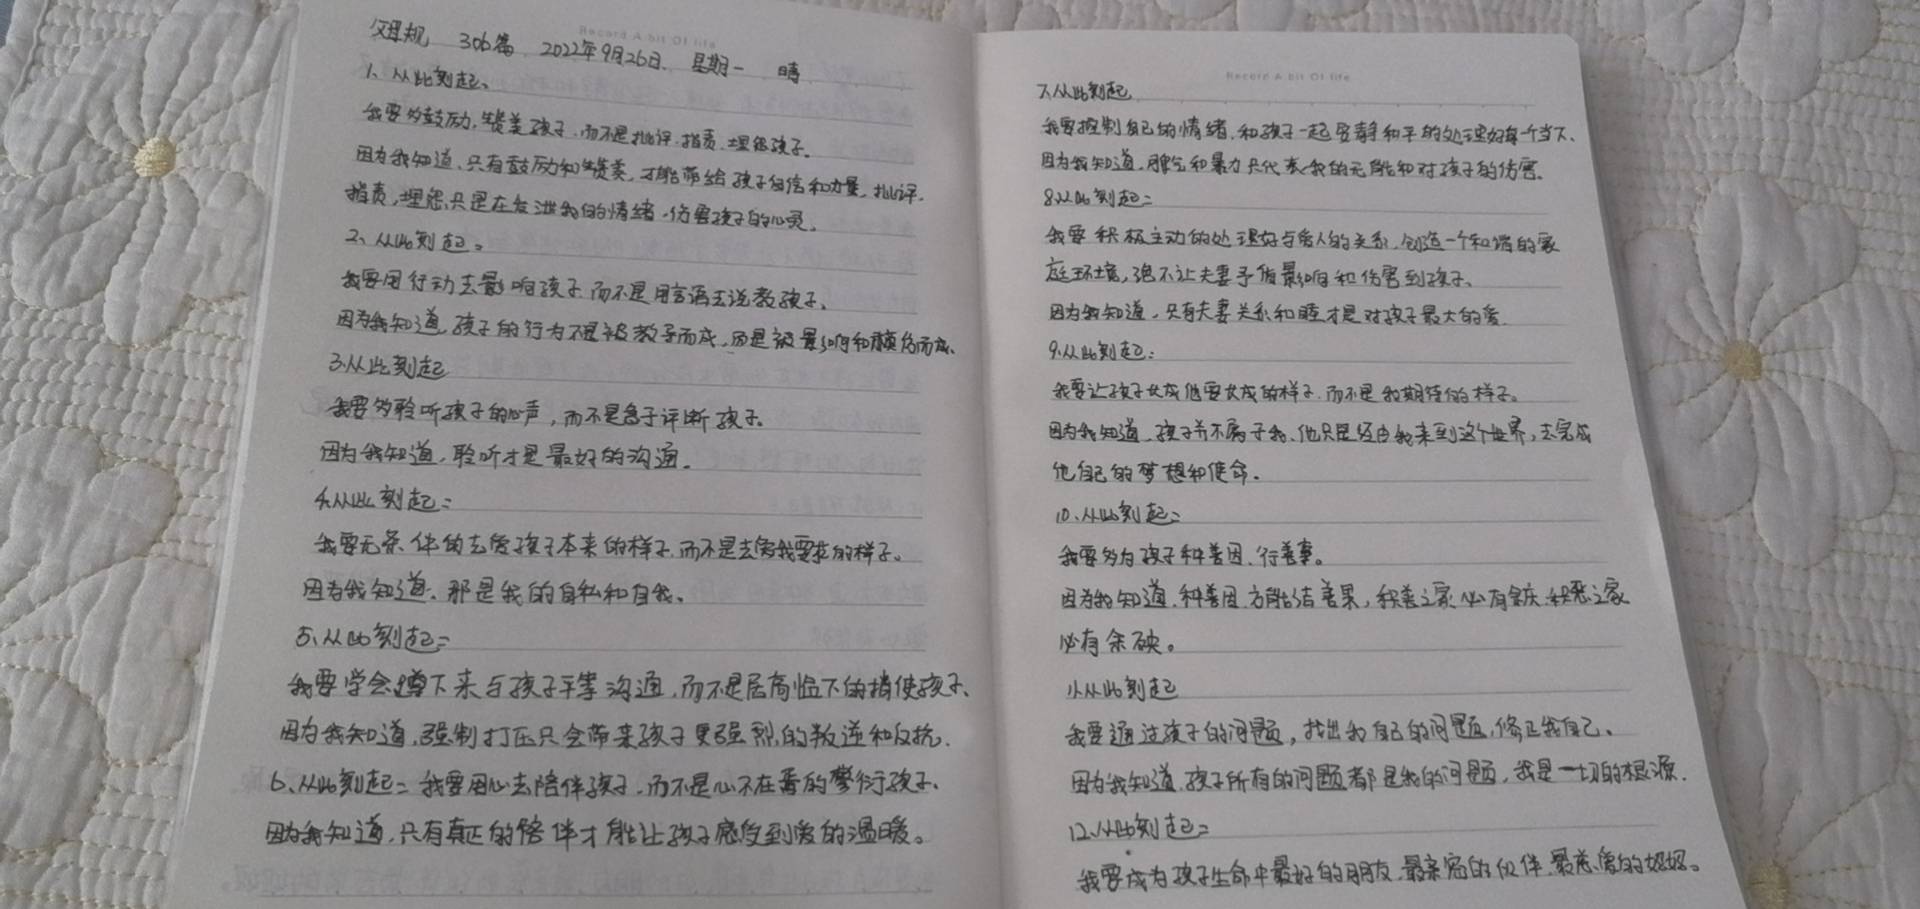 Record A bit Of life
父母规 306篇 2022年9月26日、星期一 晴
1、从此刻起、
我要多鼓励,赞美孩子,而不是批评、指责、埋怨孩子。
因为我知道、只有鼓励和赞美,才能带给孩子自信和力量,批评、
指责,埋怨只是在发泄我的情绪,伤害孩子的心灵。
2、从此刻起:
我要用行动去影响孩子,而不是用言语去说教孩子、
因为我知道,孩子的行为不是被教导而成,而是被影响和模仿而成、
3、从此刻起
我要多聆听孩子的心声,而不是急于评断孩子。
因为我知道,聆听才是最好的沟通。
4、从此刻起:
我要无条件的去爱孩子本来的样子,而不是去爱我要求的样子。
因为我知道、那是我的自私和自我、
5、从此刻起:
我要学会蹲下来与孩子平等沟通,而不是居高临下的指使孩子、
因为我知道,强制打压只会带来孩子更强烈的叛逆和反抗.
6、从此刻起:我要用心去陪伴孩子,而不是心不在焉的敷衍孩子、
因为我知道,只有真正的陪伴才能让孩子感受到爱的温暖。
Record A bit Of life
7、从此刻起
我要控制自己的情绪,和孩子一起安静和平的处理好每个当下、
因为我知道,脾气和暴力只代表我的无能和对孩子的伤害。
8、从此刻起:
我要积极主动的处理好与爱人的关系,创造一个和谐的家
庭环境,绝不让夫妻矛盾影响和伤害到孩子、
因为我知道,只有夫妻关系和睦才是对孩子最大的爱.
9、从此刻起:
我要让孩子长成他要长成的样子,而不是我期待的样子。
因为我知道,孩子并不属于我、他只是经由我来到这个世界,去完成
他自己的梦想和使命.
10、从此刻起:
我要多为孩子种善因、行善事。
因为我知道,种善因,方能结善果,积善之家必有余庆、积恶之家
必有余殃。
11、从此刻起
我要通过孩子的问题,找出我自己的问题,修正我自己、
因为我知道,孩子所有的问题都是我的问题,我是一切的根源.
12、从此刻起:
我要成为孩子生命中最好的朋友,最亲密的伙伴,最慈爱的妈妈。